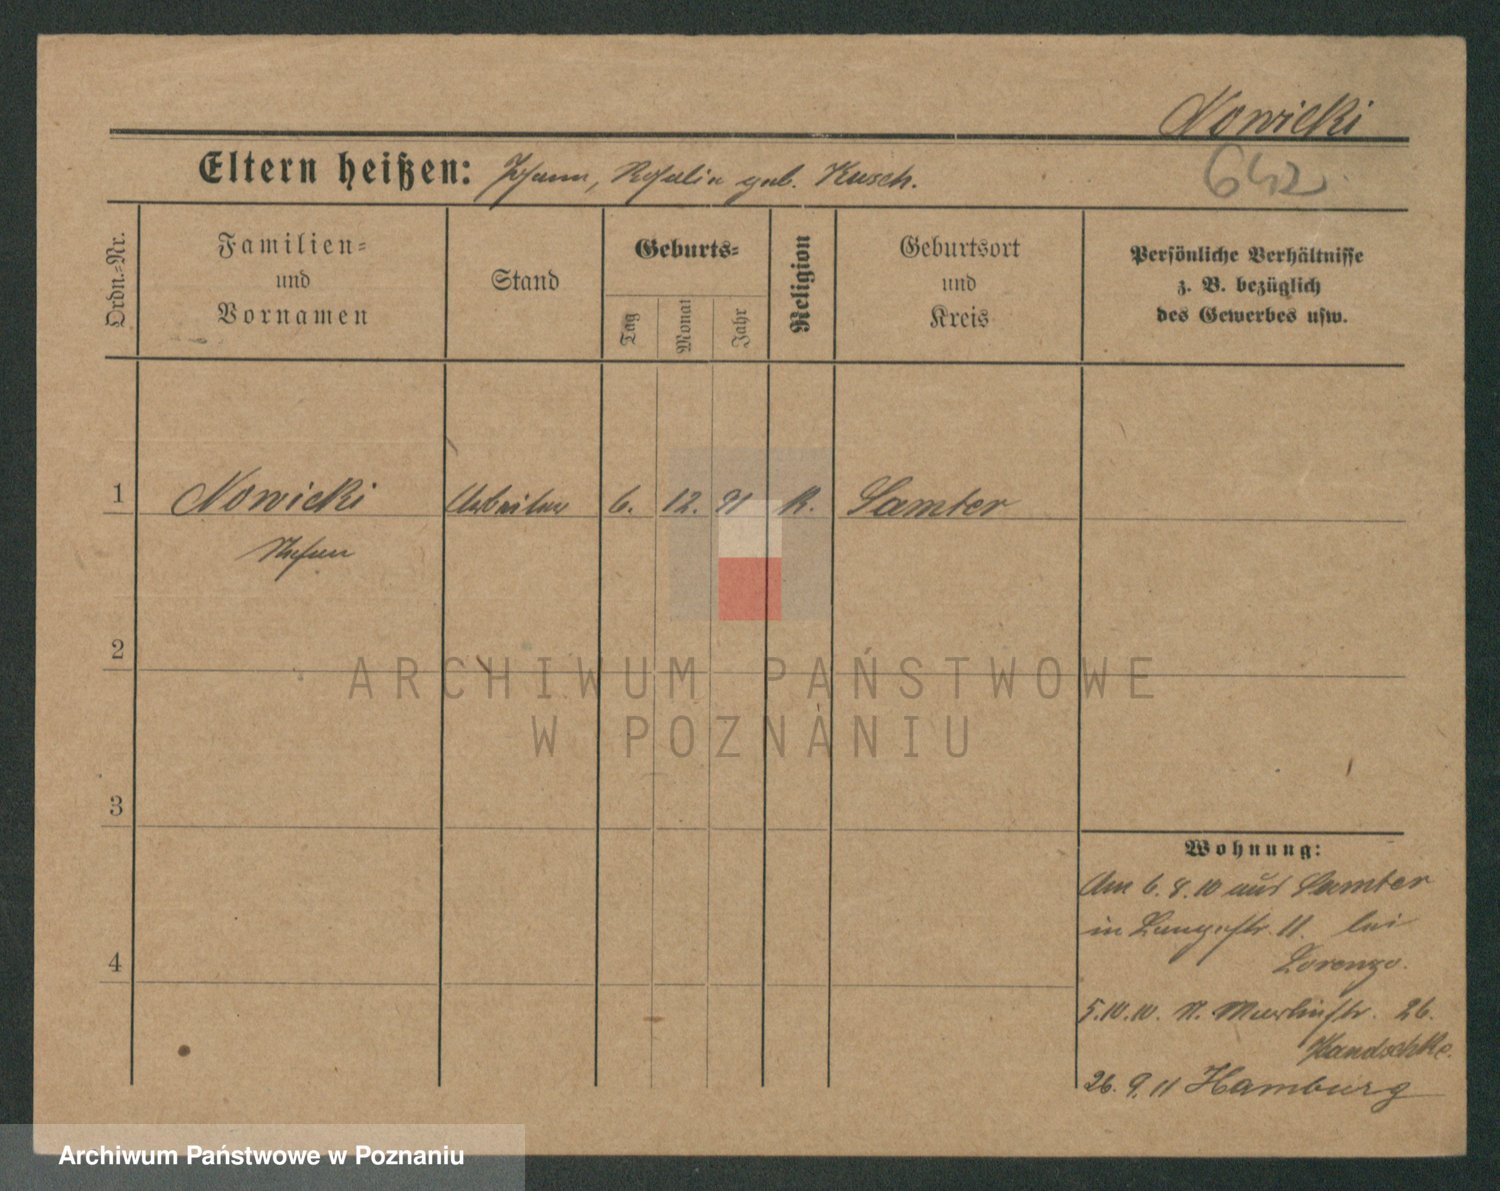 Nowicki
642
Eltern heißen: Johann, Rosalie geb. Kusch.
Ordn.-Nr.
Familien-
und
Vornamen
Stand
Geburts-
Tag
Monat
Jahr
Religion
Geburtsort
und
Kreis
Persönliche Verhältnisse
z. B. bezüglich
des Gewerbes usw.
1 Nowicki Arbeiter 6. 12. 91 K. Samter
Stefan
2
3
4
Wohnung:
Am 6.8.10 aus Samter
in Langestr. 11. bei
Lorenzo.
5.10.10. St. Martinstr. 26.
26. 9. 11 Hamburg
ARCHIWUM PAŃSTWOWE
W POZNANIU
Archiwum Państwowe w Poznaniu